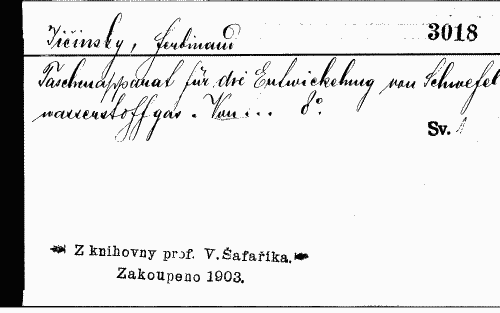 Jičinsky, Ferdinand 3018
Taschenapparat für die Entwickelung von Schwefel
wasserstoffgas. Von ... 8°.
Sv. 1
Z knihovny prof. V. Šafaříka.
Zakoupeno 1903.